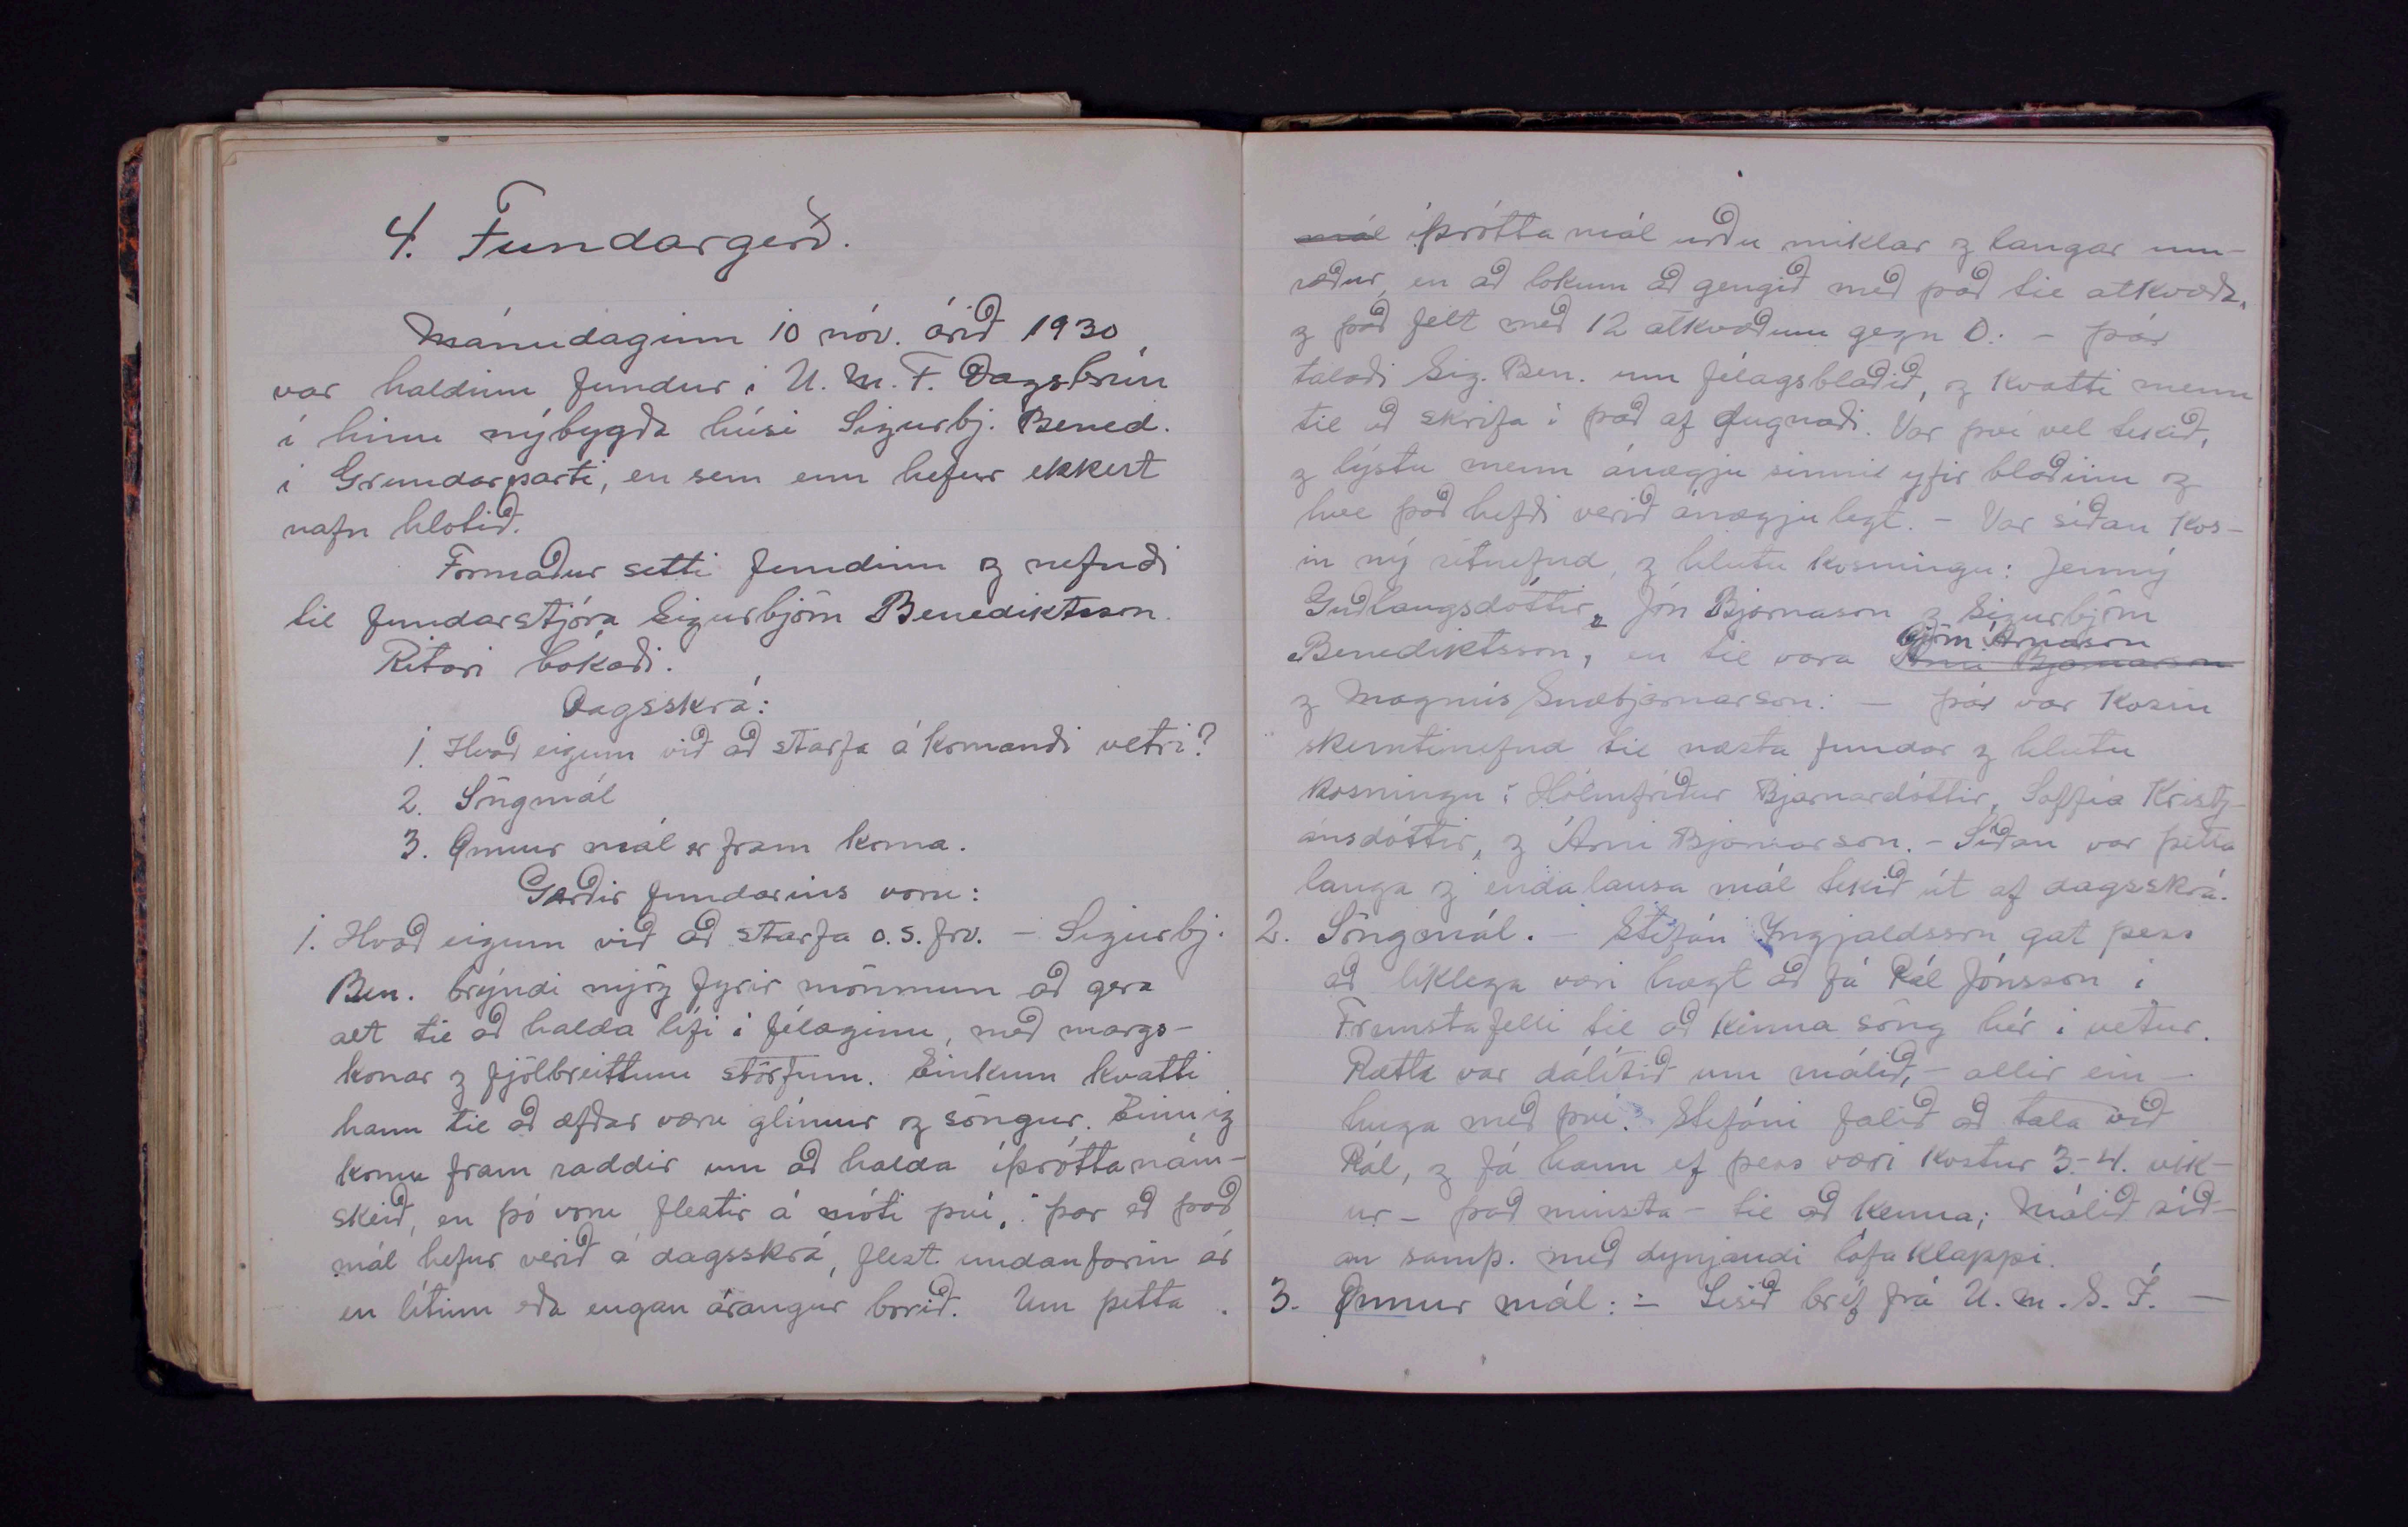 4. Fundargerð.
Mánudaginn 10 nóv. árið 1930,
var haldinn fundur í U. M. F. Dagsbrún
í hinu nýbygða húsi Sigurbj. Bened.
í Grundarparti, en sem enn hefur ekkert
nafn hlotið.
Formaður setti fundinn og nefndi
til fundarstjóra Sigurbjörn Benediktsson.
Ritari bókaði.
Dagsskrá:
1. Hvað eigum við að starfa á komandi vetri?
2. Söngmál
3. Önnur mál er fram koma.
Gerðir fundarins voru:
1. Hvað eigum við að starfa o.s.frv. – Sigurbj.
Ben. brýndi mjög fyrir mönnum að gera
alt til að halda lífi í félaginu, með margs-
konar og fjölbreittum störfum. Einkum kvatti
hann til að æfðar væru glímur og söngur. Einnig
komu fram raddir um að halda íþróttanám-
skeið, en þó voru flestir á móti því, þar eð það
mál hefur verið á dagsskrá, flest undanfarin ár
en lítinn eða engan árangur borið. Um þetta
mál íþróttamál urðu miklar og langar um-
ræður, en að lokum að gengið með það til atkvæða,
og það felt með 12 atkvæðum gegn 0. – Þár
talaði Sig. Ben. um félagsblaðið, og kvatti menn
til að skrifa í það af dugnaði. Var því vel tekið,
og lýstu menn ánægju sinni yfir blaðinu og
hve það hefði verið ánægjulegt. – Var síðan kos-
in ný ritnefnd, og hlutu kosningu: Jenný
Guðlaugsdóttir, Jón Bjarnason og Sigurbjörn
Björn Árnason
Benediktsson, en til vara Árni Bjarnarson
og Magnús Snæbjarnarson: – Þár var kosin
skemtinefnd til næsta fundar og hlutu
kosningu: Hólmfríður Bjarnardóttir, Soffía Kristj-
ánsdóttir, og Árni Bjarnarson. – Síðan var þetta
langa og endalausa mál tekið út af dagsskrá.
2. Söngmál. – Stefán Yngjaldsson gat þess
að líklega væri hægt að fá Pál Jónsson í
Fremstafelli til að kenna söng hér í vetur.
Rætt var dálítið um málið, – allir ein-
huga með því. Stefáni falið að tala við
Pál, og fá hann ef þess væri kostur 3.-4. vik-
ur – það minsta – til að kenna; Málið síð-
an samþ. með dynjandi lófaklappi.
3. Önnur mál: – Lesið bréf frá U. M. S. Í. –